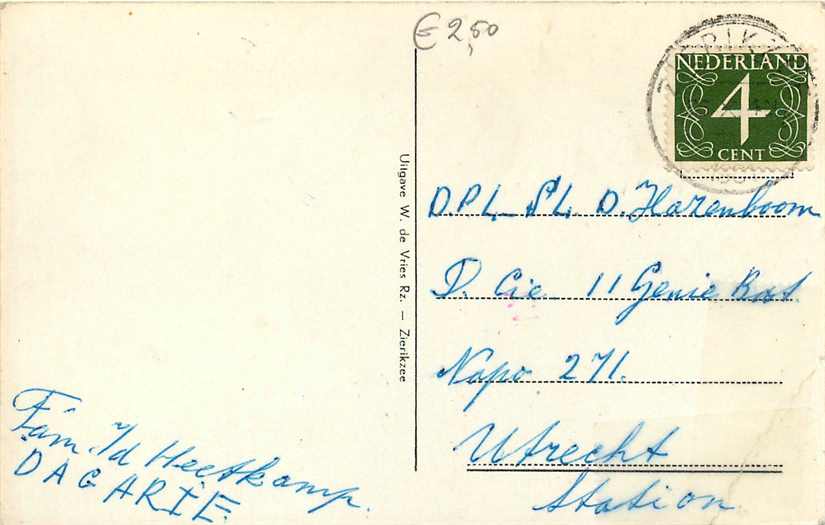 € 2,50
NEDERLAND
4
CENT
Uitgave W. de Vries Rz. – Zierikzee
DPL. SL. D. Hazenboom
D. Cie 11 Genie Bat.
Napo 271.
Utrecht
Station
Fam. v/d Heetkamp.
DAGARIE.